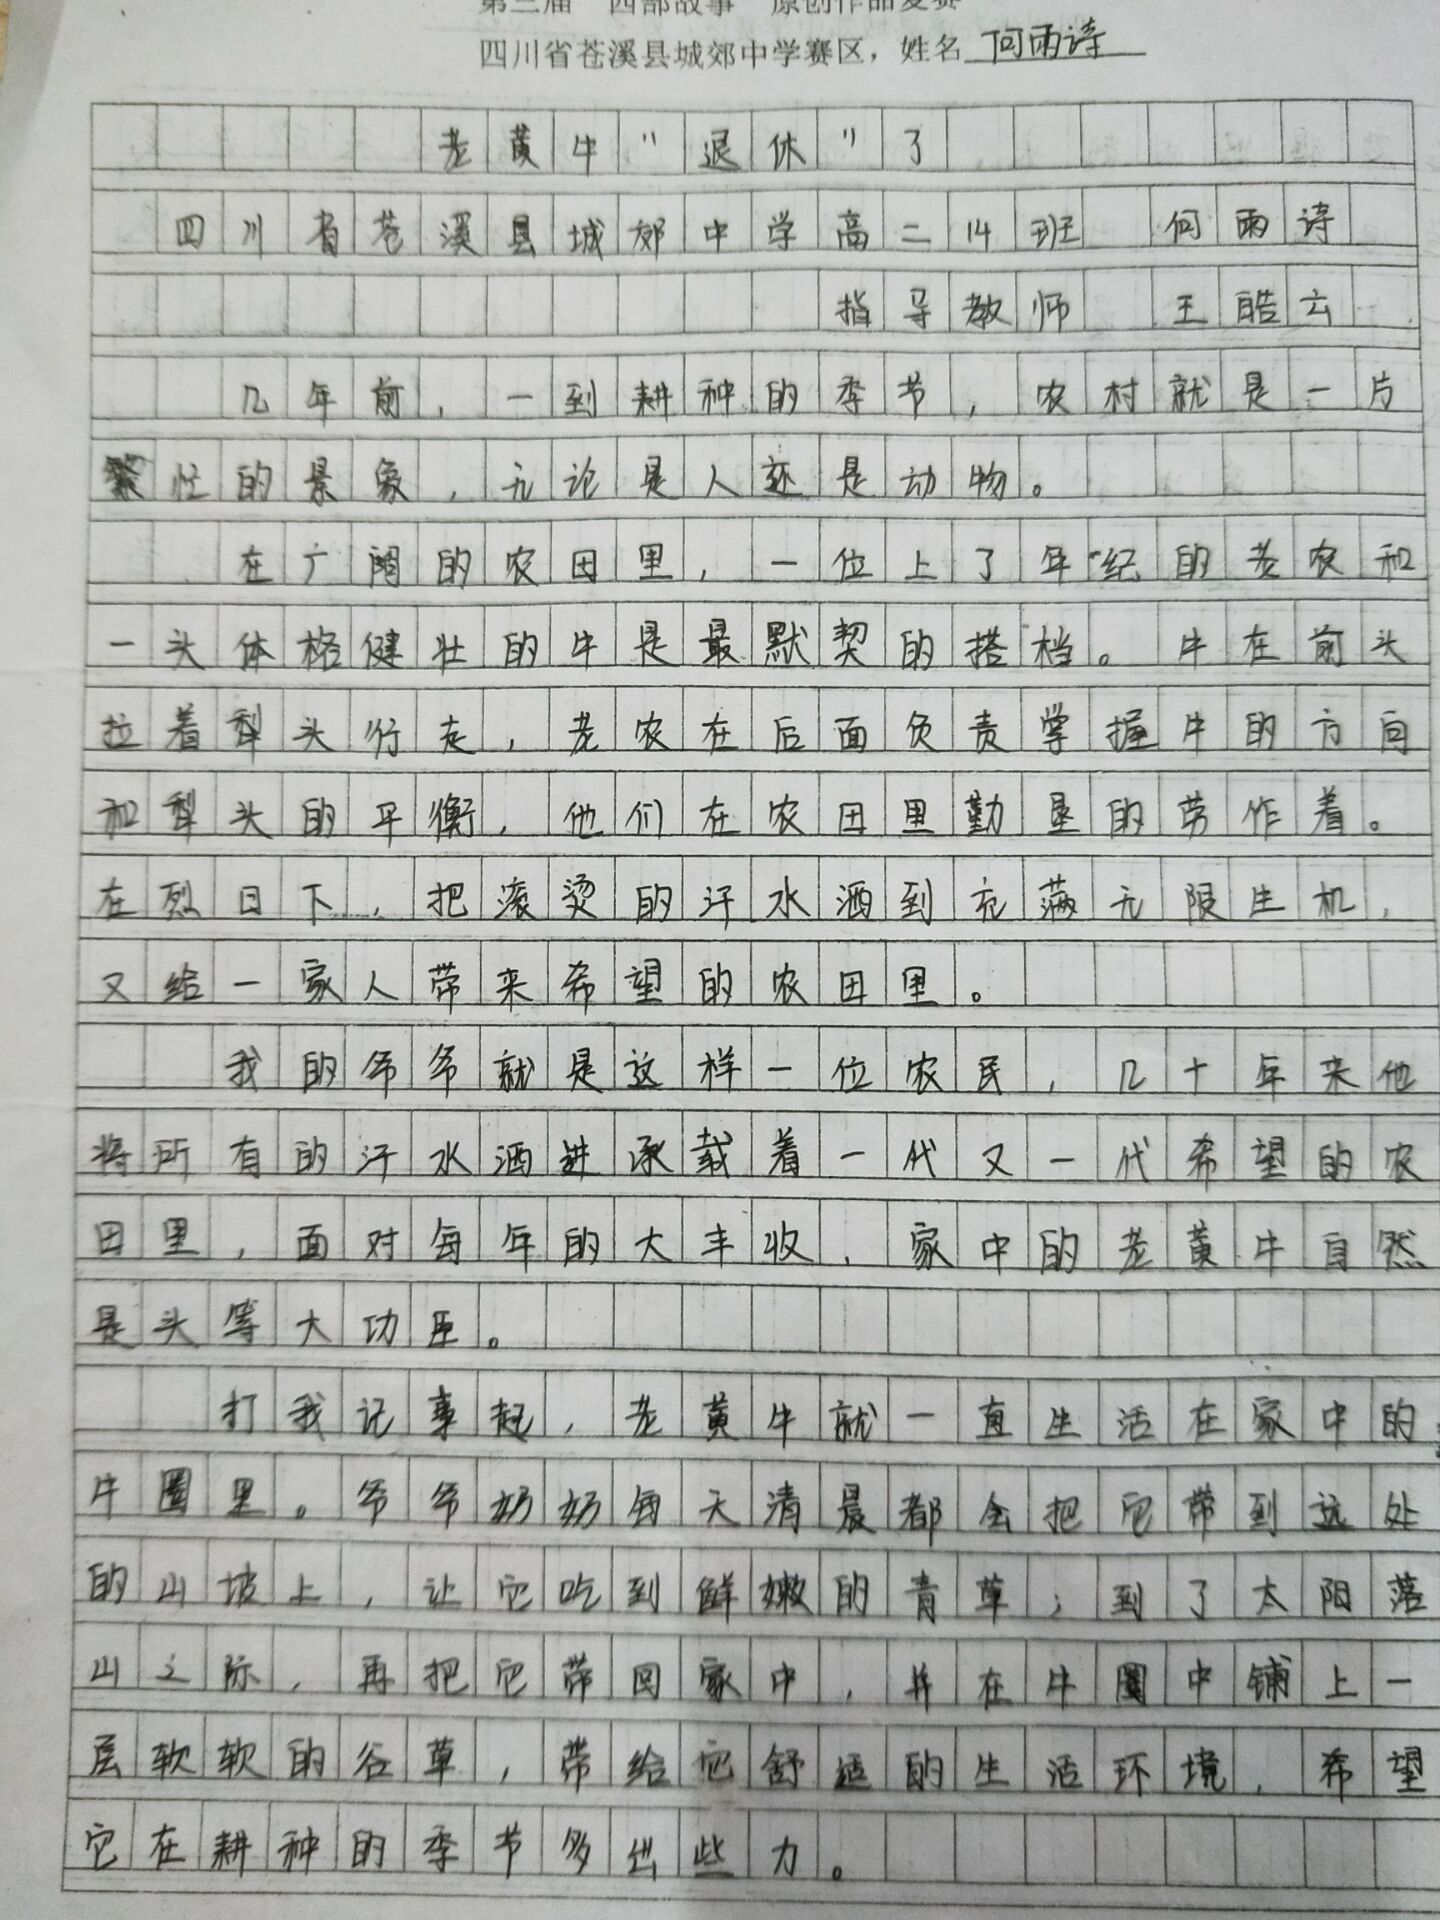 第三届“西部故事”原创作品复赛
四川省苍溪县城郊中学赛区，姓名 何雨诗
老黄牛“退休”了
四川省苍溪县城郊中学高二14班 何雨诗
指导教师 王皓云
几年前，一到耕种的季节，农村就是一片
繁忙的景象，无论是人还是动物。
在广阔的农田里，一位上了年纪的老农和
一头体格健壮的牛是最默契的搭档。牛在前头
拉着犁头行走，老农在后面负责掌握牛的方向
和犁头的平衡，他们在农田里勤垦的劳作着。
在烈日下，把滚烫的汗水洒到充满无限生机，
又给一家人带来希望的农田里。
我的爷爷就是这样一位农民，几十年来他
将所有的汗水洒进承载着一代又一代希望的农
田里，面对每年的大丰收，家中的老黄牛自然
是头等大功臣。
打我记事起，老黄牛就一直生活在家中的
牛圈里。爷爷奶奶每天清晨都会把它带到远处
的山坡上，让它吃到鲜嫩的青草；到了太阳落
山之际，再把它带回家中，并在牛圈中铺上一
层软软的谷草，带给它舒适的生活环境，希望
它在耕种的季节多出些力。